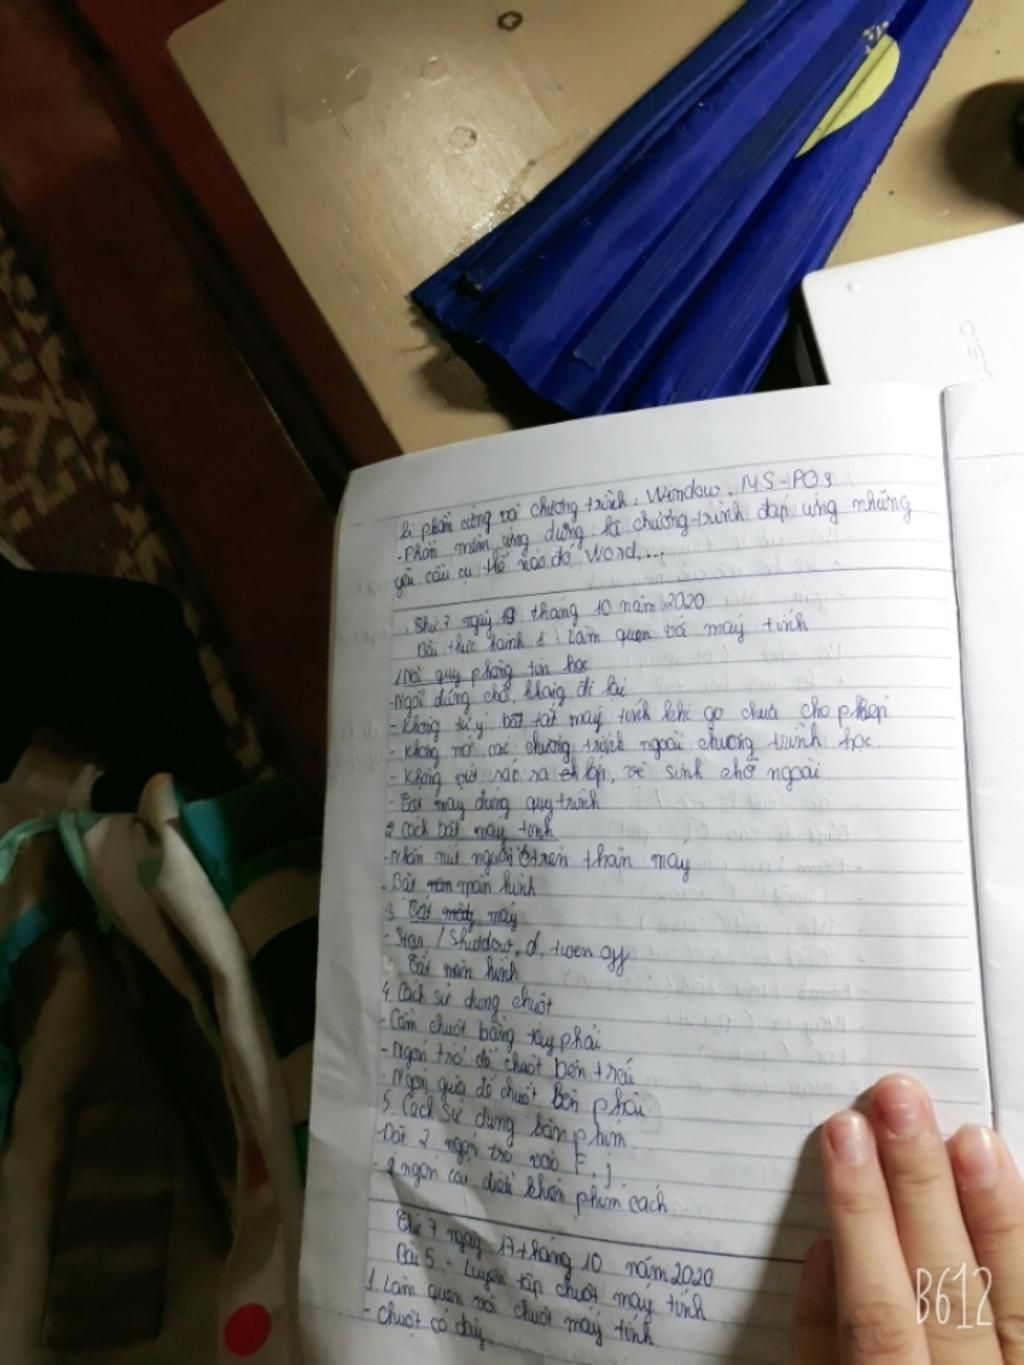 là phần cứng và chương trình: Window, MS-POS
- Phần mềm ứng dụng: là chương trình đáp ứng những
yêu cầu cụ thể nào đó, Word,...
Thứ 7 ngày tháng 10 năm 2020
Bài thực hành 1: Làm quen với máy tính
1 Nội quy phòng tin học
- Ngồi đúng chỗ, không đi lại
- Không tự ý bật tắt máy tính khi chưa cho phép
- Không mở các chương trình ngoài chương trình học.
- Không vứt rác ra lớp, vệ sinh chỗ ngoài.
- Tắt máy đúng quy trình
2 Cách bật máy tính
- Nhấn nút nguồn ở trên thân máy
- Bật màn hình
3. Tắt máy
- Star / Shutdow, d, twen off
- Tắt màn hình
4. Cách sử dụng chuột
- Cầm chuột bằng tay phải
- Ngón trỏ để chuột bên trái
- Ngón giữa để chuột bên phải.
5. Cách sử dụng bàn phím
- Đặt 2 ngón trỏ vào F, j
- 2 ngón cái điều khiển phím cách
Thứ 7 ngày 17 tháng 10 năm 2020
Bài 5 - Luyện tập chuột máy tính
1. Làm quen với chuột máy tính
- Chuột có dây
B612